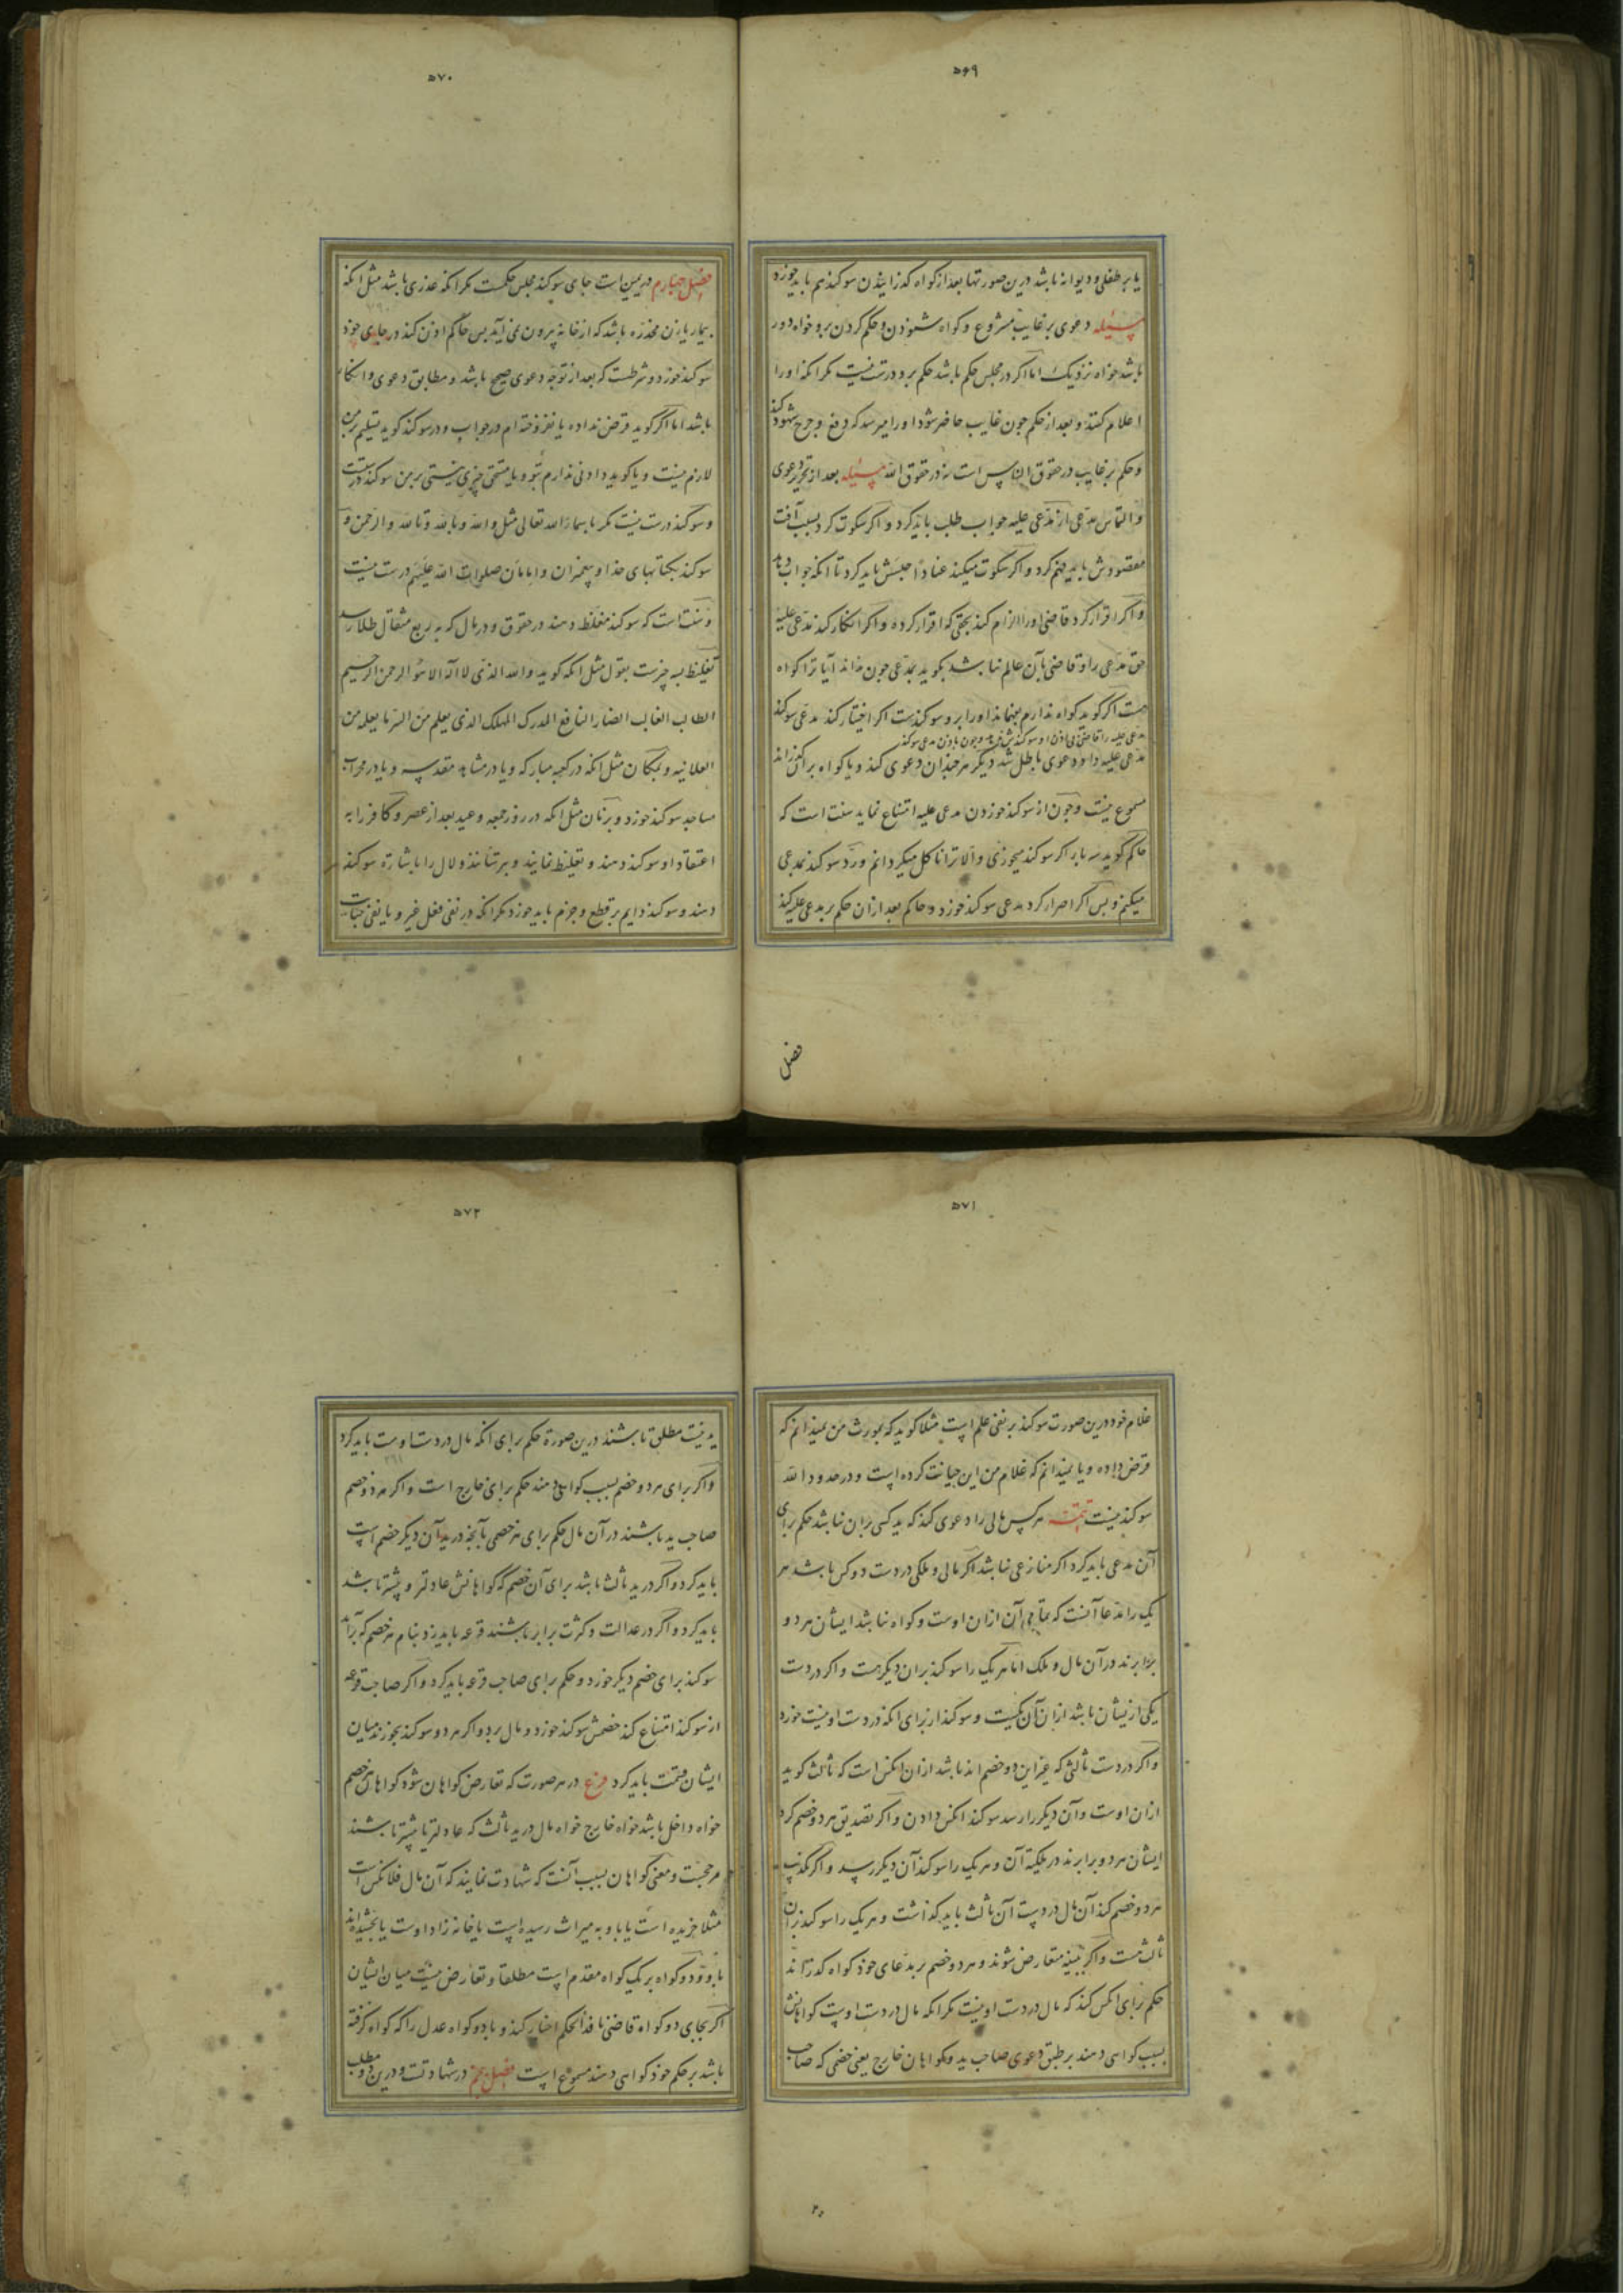 ۵۶۹
یا بر طفلی و دیوانه باشد درین صورتها بعد از کواه کذرانیدن سوکند هم باید خورد
مسئله دعوی بر غایب مشروع و کواه شنودن و حکم کردن برو خواه دور
باشد خواه نزدیک اما اکر در مجلس حکم باشد حکم برو درست نیست مکر انکه او را
اعلام کنند و بعد از حکم چون غایب حاضر شود او را میرسد که دفع و جرح شهود کند
و حکم بر غایب در حقوق الناس است نه در حقوق الله مسئله بعد از تحریر دعوی
و التماس مدعی از مدعی علیه جواب طلب باید کرد و اکر سکوت کرد بسبب آفت
مقصودش باید فهم کرد و اکر سکوت میکند عنادا حبسش باید کرد تا انکه جواب دهد
و اکر اقرار کرد قاضی او را الزام کند بحقی که اقرار کرده و اکر انکار کند مدعی علیه
حق مدعی را و قاضی بآن عالم نباشد بکوید بمدعی چون نداند آیا ترا کواه
هست اکر کوید کواه ندارم بفهماند او را برو سوکندست اکر اختیار کند مدعی سوکند
مدعی علیه را قاضی بی اذن او سوکندش ندهد و چون باذن مدعی سوکند
مدعی علیه داد دعوی باطل شد دیکر هر چند ان دعوی کند و یا کواه بران کذراند
مسموع نیست و چون از سوکند خوردن مدعی علیه امتناع نماید سنت است که
حاکم کوید سه بار اکر سوکند میخوری و الا ترا ناکل میکردانم و رد سوکند بمدعی
میکنم و بس اکر اصرار کرد مدعی سوکند خورد و حاکم بعد از ان حکم بر مدعی علیه کند
فصل
۵۷۰
فصل چهارم در یمین است جای سوکند مجلس حکمست مکر انکه عذری باشد مثل انکه
بیمار یا زن مخدره باشد که از خانه بیرون نمی آید بس حاکم اذن کند در جای خود
سوکند خورد و شرطست که بعد از توجه دعوی صحیح باشد و مطابق دعوی و انکار
باشد اما اکر کوید قرض نداده یا نفروخته ام در جواب و در سوکند کوید تسلیم بر من
لازم نیست و یا کوید دادنی ندارم بتو و یا مستحق چیزی نیستی بر من سوکند درستست
و سوکند درست نیست مکر باسماء الله تعالی مثل و الله و بالله و تالله و الرحمن و
سوکند بکتابهای خدا و پیغمبران و امامان صلوات الله علیهم درست نیست
و سنت است که سوکند مغلظ دهند در حقوق و در مال که بربع مثقال طلا رسد
تغلیظ بسه چیزست بقول مثل انکه کوید و الله الذی لا اله الا هو الرحمن الرحیم
الطالب الغالب الضار النافع المدرک المهلک الذی یعلم من السر ما یعلمه من
العلانیه و بمکان مثل انکه در کعبه مبارکه و یا در مشاهد مقدسه و یا در محراب
مساجد سوکند خورد و بزمان مثل انکه در روز جمعه و عید بعد از عصر و کافر را به
اعتقاد او سوکند دهند و تغلیظ نمایند و بترسانند و لال را باشارة سوکند
دهند و سوکند دایم بر قطع و جزم باید خورد مکر انکه در نفی فعل غیر و یا نفی جنایت
۵۷۱
غلام خود درین صورت سوکند بر نفی علم است مثلا کوید که بمورث من نمیدانم که
قرض داده و یا نمیدانم که غلام من این جنایت کرده است و در حدود الله
سوکند نیست تتمه هر کس مالی را دعوی کند که ید کسی بران نباشد حکم برای
آن مدعی باید کرد اکر منازعی نباشد اکر مالی و ملکی در دست دو کس باشد هر
یک را مدعا آنست که تمامی آن ازان اوست و کواه نباشد ایشان هر دو
برابرند در آن مال و ملک اما هر یک را سوکند بران دیکر هست و اکر در دست
یکی از یشان باشد ازان آن یکیست و سوکند از برای انکه در دست او نیست خورد
و اکر در دست ثالثی که غیر این دو خصم اند باشد ازان انکس است که ثالث کوید
ازان اوست و آن دیکر را رسد سوکند انکس دادن و اکر تصدیق هر دو خصم کرد
ایشان هر دو برابرند در ملکیة آن و هر یک را سوکند آن دیکر رسد و اکر تکذیب
هر دو خصم کند آن مال در دست آن ثالث باید کذاشت و هر یک را سوکند بران
ثالث هست و اکر بینه متعارض شوند و هر دو خصم بر مدعای خود کواه کذرانند
حکم برای انکس کند که مال در دست او نیست مکر انکه مال در دست اوست کواهانش
بسبب کواهی دهند بر طبق دعوی صاحب ید و کواهان خارج یعنی خصمی که صاحب
۵۷۲
ید نیست مطلق باشند درین صورة حکم برای انکه مال در دست اوست باید کرد
و اکر برای هر دو خصم بسبب کواهی دهند حکم برای خارج است و اکر هر دو خصم
صاحب ید باشند در آن مال حکم برای هر خصمی بآنچه در ید آن دیکر خصم است
باید کرد و اکر در ید ثالث باشد برای آن خصم که کواهانش عادلتر و بیشتر باشد
باید کرد و اکر در عدالت و کثرت برابر باشند قرعه باید زد بنام هر خصم که برآید
سوکند برای خصم دیکر خورد و حکم برای صاحب قرعه باید کرد و اکر صاحب قرعه
از سوکند امتناع کند خصمش سوکند خورد و مال برد و اکر هر دو سوکند نخورند میان
ایشان قسمت باید کرد فرع در هر صورت که تعارض کواهان شود کواهان هر خصم
خواه داخل باشد خواه خارج خواه مال در ید ثالث که عادلتر یا بیشتر باشند
مرجحست و معنی کواهان بسبب آنست که شهادت نمایند که آن مال فلانکس است
مثلا خریده است یا باو به میراث رسیده است یا خانه زاد اوست یا بخشیده اند
باو و دو کواه بر یک کواه مقدم است مطلقا و تعارض نیست میان ایشان
اکر بجای دو کواه قاضی نافذ الحکم اخبار کند و یا دو کواه عدل را که کواه کرفته
باشد بر حکم خود کواهی دهند مسموع است فصل پنجم در شهادتست و درین دو مطلب